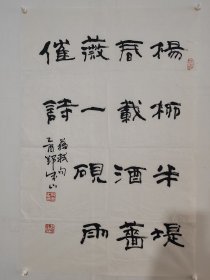 楊柳半堤
春載酒薔
薇一硯雨
催詩
乙酉